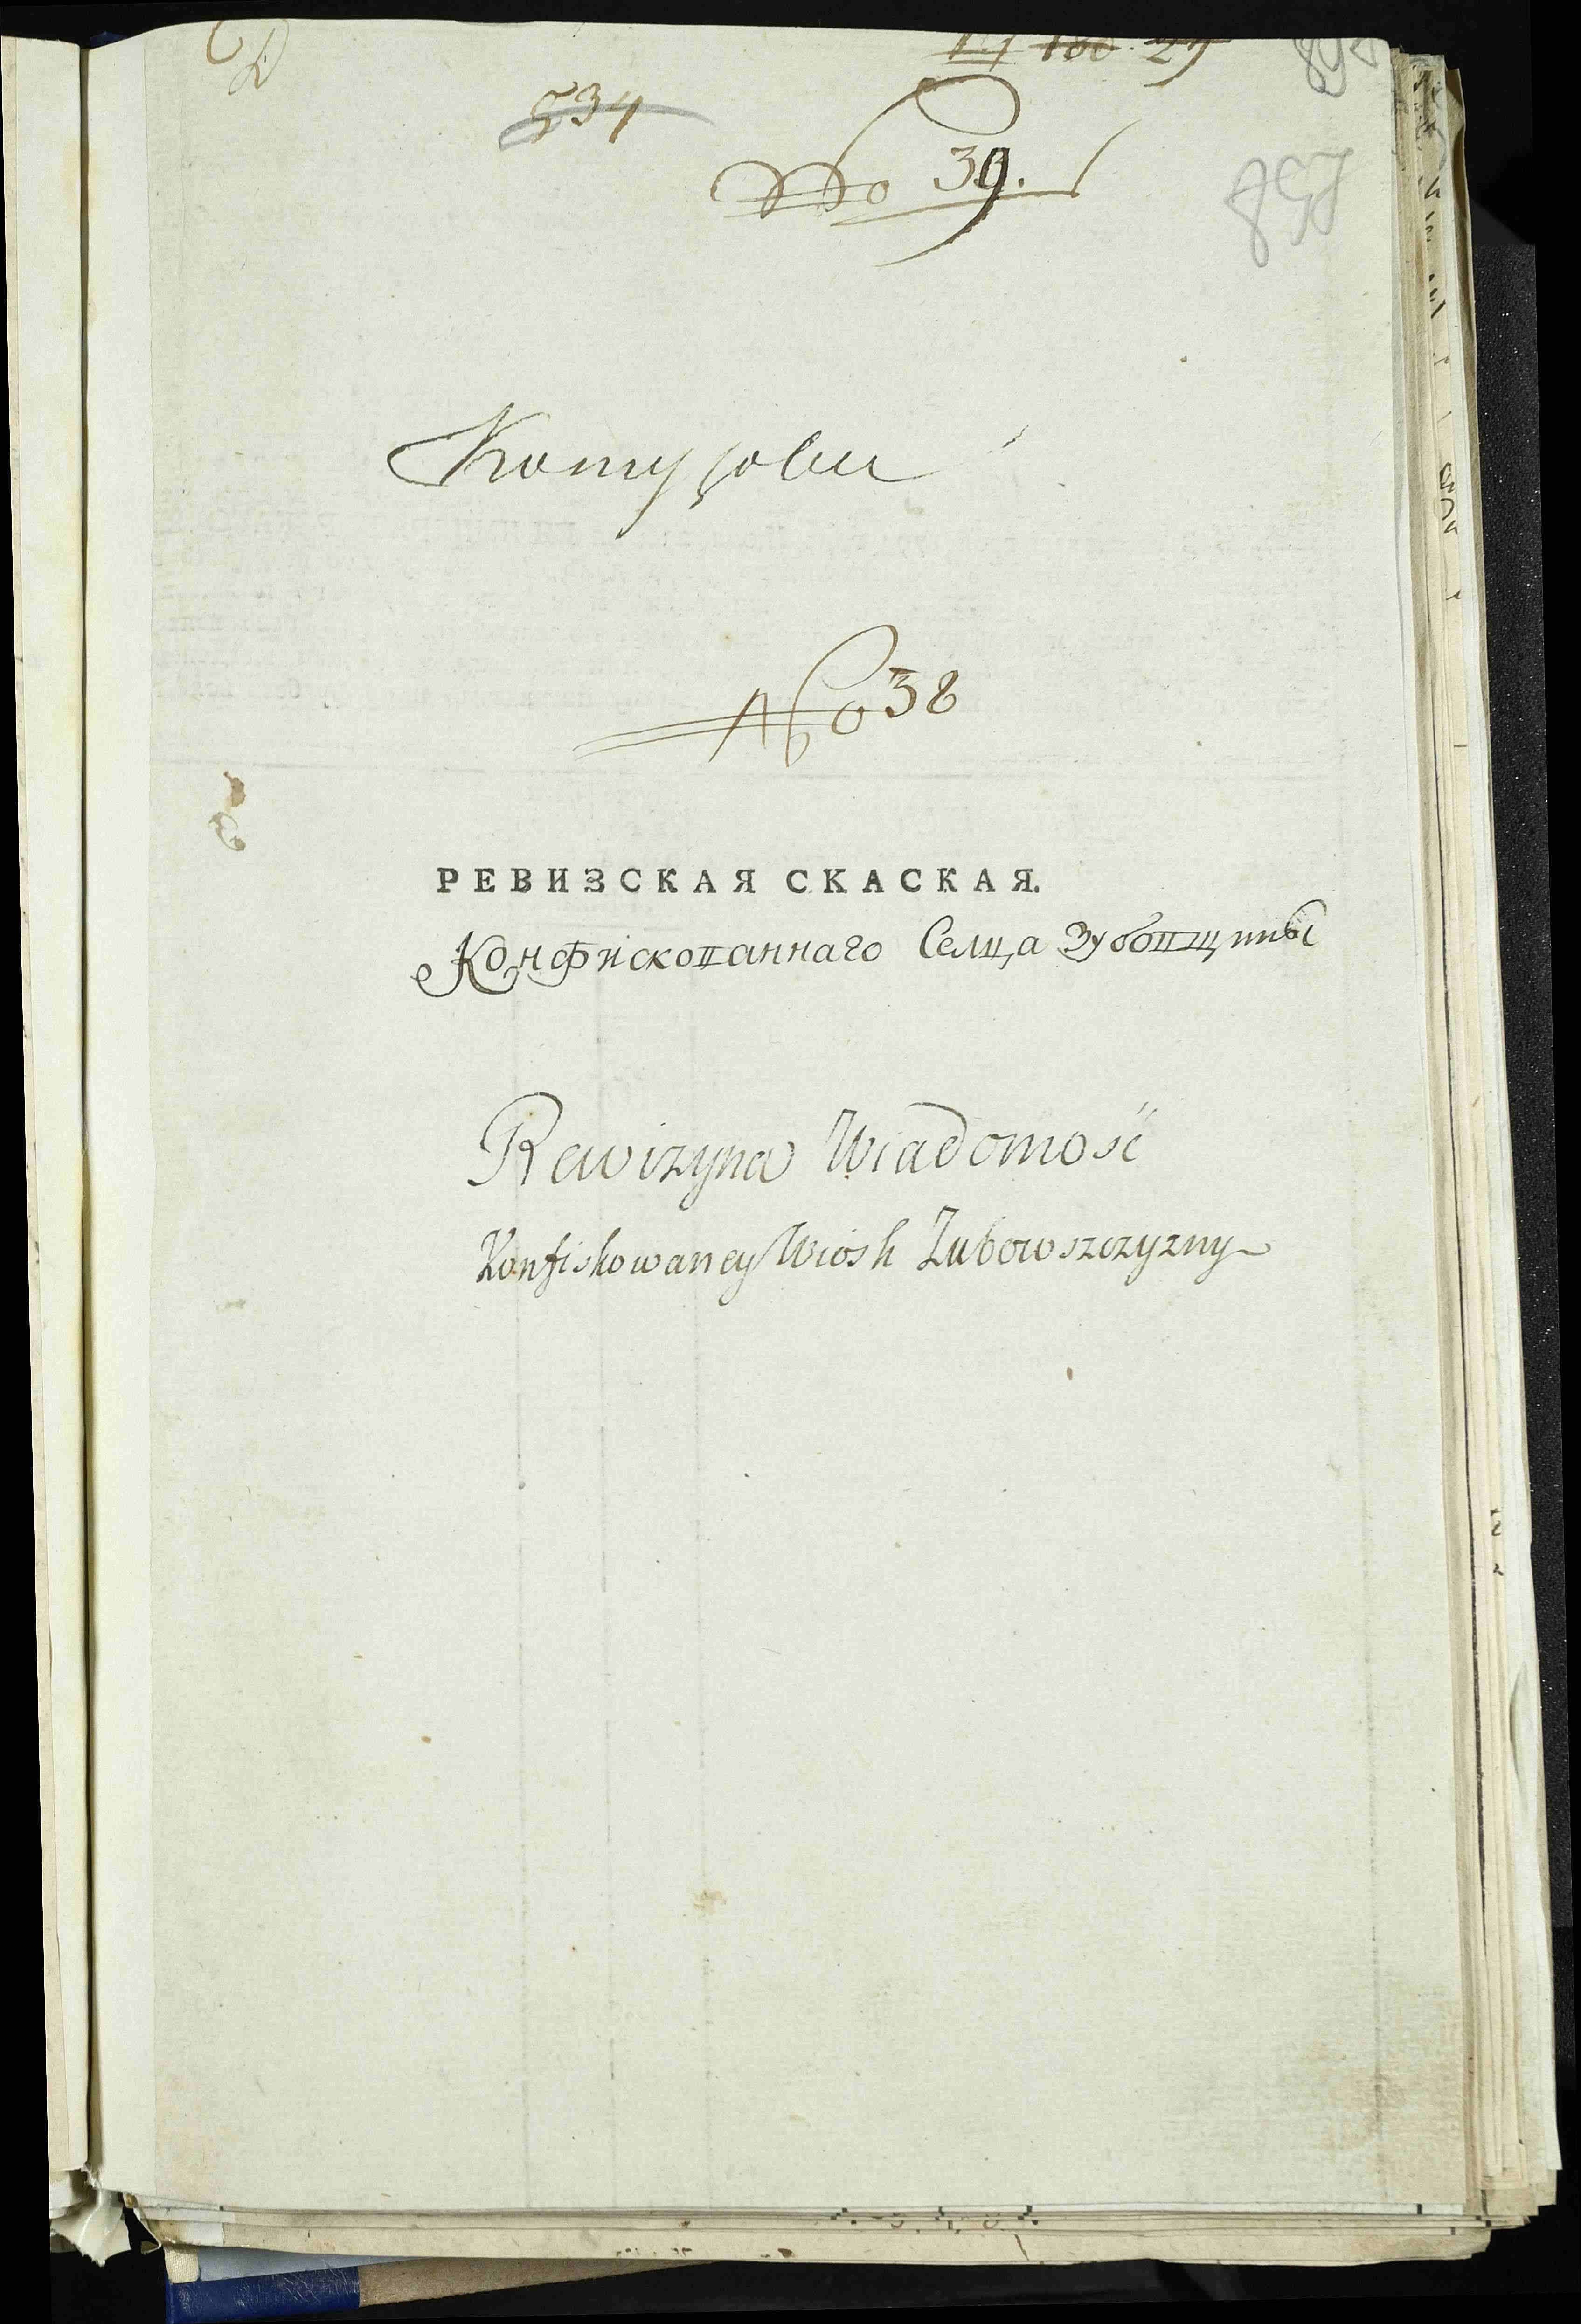 534
No 39.
858
Котузови
No 38
РЕВИЗСКАЯ СКАСКАЯ.
Конфискованнаго Селца Зубовщины
Rewizyna Wiadomość
Konfiskowaney Wiosk Zubowszczyzny